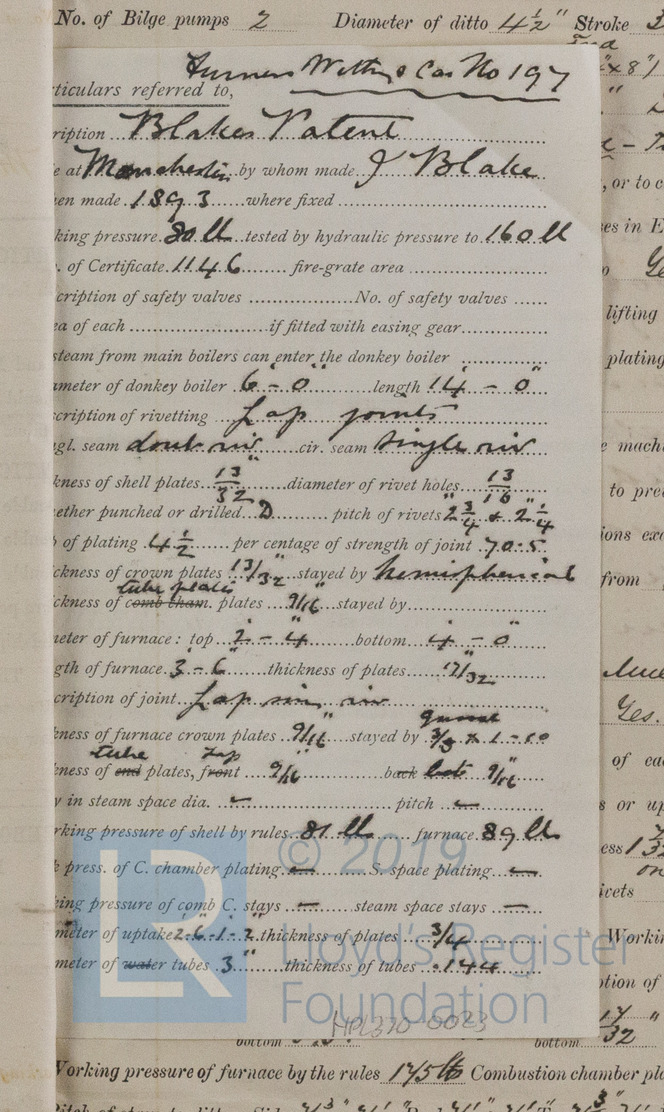 No. of Bilge pumps 2 Diameter of ditto 4½" Stroke
"x8")
Turners Witty & Cos No 197
rticulars referred to,
ription Blakes Patent
e at Manchester by whom made J Blake
en made 1893 where fixed
, or to
king pressure 80 lb tested by hydraulic pressure to 160 lb
. of Certificate 1146 fire-grate area
cription of safety valves No. of safety valves
lifting
ea of each if fitted with easing gear
steam from main boilers can enter the donkey boiler
plating
ameter of donkey boiler 6'-0" length 14'-0"
cription of rivetting Lap joints
ngl. seam doub. riv. cir. seam single riv
kness of shell plates 13/32" diameter of rivet holes 13/16
to
ether punched or drilled D pitch of rivets 2¾" & 2¼"
of plating 4½ per centage of strength of joint 70.5
ckness of crown plates 13/32 stayed by hemispherical
from
tube plates
ckness of comb cham. plates 9/16" stayed by
meter of furnace: top bottom 4'-0"
gth of furnace 3'-6" thickness of plates 17/32"
cription of joint Lap sin. riv
Yes.
gusset
kness of furnace crown plates 9/16" stayed by
tube Top
kness of end plates, front 9/16" back 9/16"
of
y in steam space dia. — pitch —
or
rking pressure of shell by rules 81 lb furnace 89 lb
© 2019
press. of C. chamber plating — S. space plating —
ivets
ing pressure of comb C. stays — steam space stays —
meter of uptake 2-6"-1-2" thickness of plates 3/4"
Lloyd's Register
LR
meter of water tubes 3" thickness of tubes .144
Foundation
HPL370-0023
17/32"
bottom bottom
Working pressure of furnace by the rules 175 lb Combustion chamber